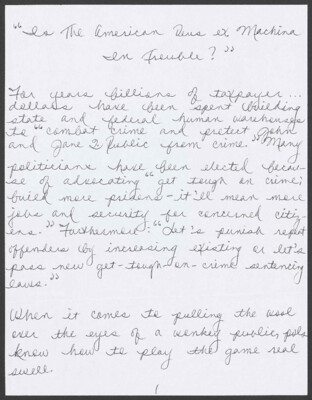 "Is The American Deus ex Machina
In Trouble?"
For years billions of taxpayer...
dollars have been spent building
state and federal human warehouses
to "combat crime and protect John
and Jane Q Public from crime." Many
politicians have been elected becau-
se of advocating "get tough on crime;
build more prisons - it'll mean more
jobs and security for concerned citiz-
ens." Furthermore: "Let's punish repeat
offenders by increasing existing or let's
pass new get-tough-on-crime sentencing
laws."
When it comes to pulling the wool
over the eyes of a public, pols
know how to play the game real
swell.
1